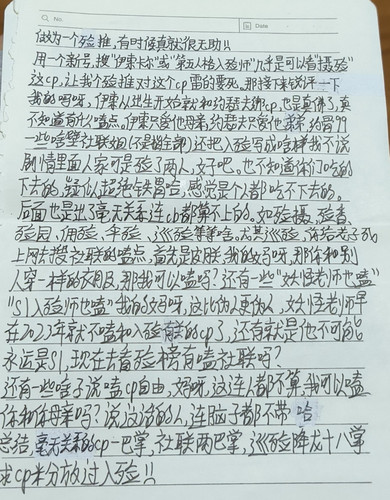 No.
Date
做为一个殓推,有时候真就很无助!!
用一个新号,搜"伊索卡尔"或"第五人格入殓师"几乎是可以看摄殓
这cp,让我个殓推对这个cp雷的要死,那接下来锐评一下
我的妈呀,伊索从出生开始就和约瑟夫绑cp,也是真佛了,真
不知道有什么嗑点。伊索只爱他母亲,约瑟夫只爱他弟弟,约骨99
一些啥壁社联姐(不是婉言部)还把入殓写成啥样我不说
剧情里面人家可是殓了两人,好子吧。也不知道你们吃的
下去的,疑似超绝铁胃哈,感觉是个人都吃不下去的。
后面也是出了毫无关系连cp都算不上的。如殓摄、殓香、
殓园、佣殓、千殓、巡殓等等啥,尤其巡殓,你给老子
上网去搜社联的嗑点,首先是皮肤我的好呀,那你和别
人穿一样的衣服,那我可以嗑吗?还有一些"妖怪老师也嗑"
"S1入殓师也嗑"我的好呀,这比伪人更伪人,妖怪老师早
在2023年就不嗑和入殓有关的cp了,还有就是他不可能
永远是S1,现在去看殓榜有嗑社联吗?
还有一些啥子说嗑cp自由,好呀,这连人都不算我可以嗑
你和你母亲吗?说这话的人,连脑子都不带 哈
总结,毫无关系的cp一巴掌,社联两巴掌,巡殓降龙十八掌
求cp粉分放过入殓!!